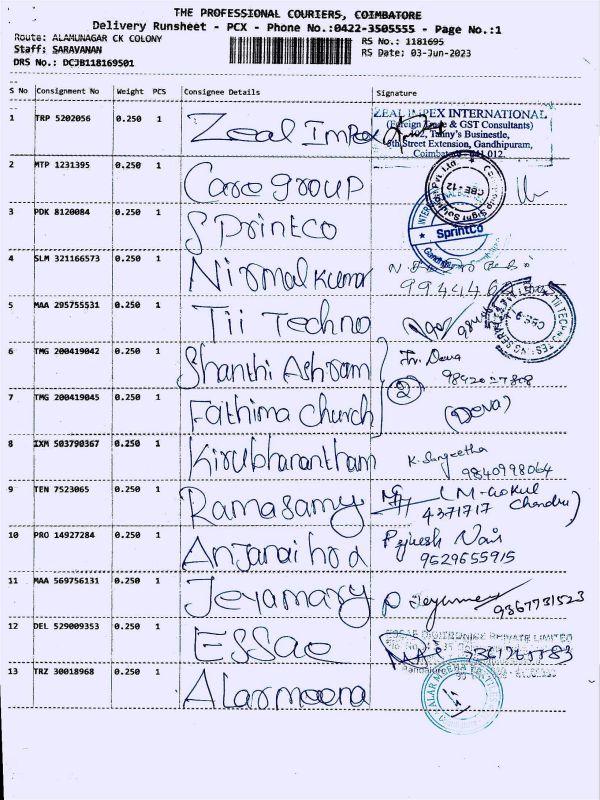 THE PROFESSIONAL COURIERS, COIMBATORE
Delivery Runsheet - PCX - Phone No.:0422-3505555 - Page No.:1
Route: ALAMUNAGAR CK COLONY RS No.: 1181695
Staff: SARAVANAN RS Date: 03-Jun-2023
DRS No.: DCJB118169501
S No Consignment No Weight PCS Consignee Details Signature
1 TRP 5202056 0.250 1 Zeal Impex
ZEAL IMPEX INTERNATIONAL
(Foreign Trade & GST Consultants)
102, Tanny's Businestle,
8th Street Extension, Gandhipuram,
Coimbatore - 641 012.
2 MTP 1231395 0.250 1 Care group
CBE-12
3 PDK 8120084 0.250 1 SPrintco
SprintCo
4 SLM 321166573 0.250 1 Nirmal kumar
5 MAA 295755531 0.250 1 Tii Techno
6 TMG 200419042 0.250 1 Shanthi Ashram Fr. Deva
2
7 TMG 200419045 0.250 1 Fathima church (Deva)
8 IXM 503790367 0.250 1 Kirubharantham K. Sangeetha
9840998064
9 TEN 7523065 0.250 1 Ramasamy (M-Gokul
4371717 Chandru)
10 PRO 14927284 0.250 1 Anjanai hod
9629655915
11 MAA 569756131 0.250 1 Jeyamary
9367731523
12 DEL 529009353 0.250 1 ESSae
ESSAE DIGITRONICS PRIVATE LIMITED
13 TRZ 30018968 0.250 1 Alarmeena